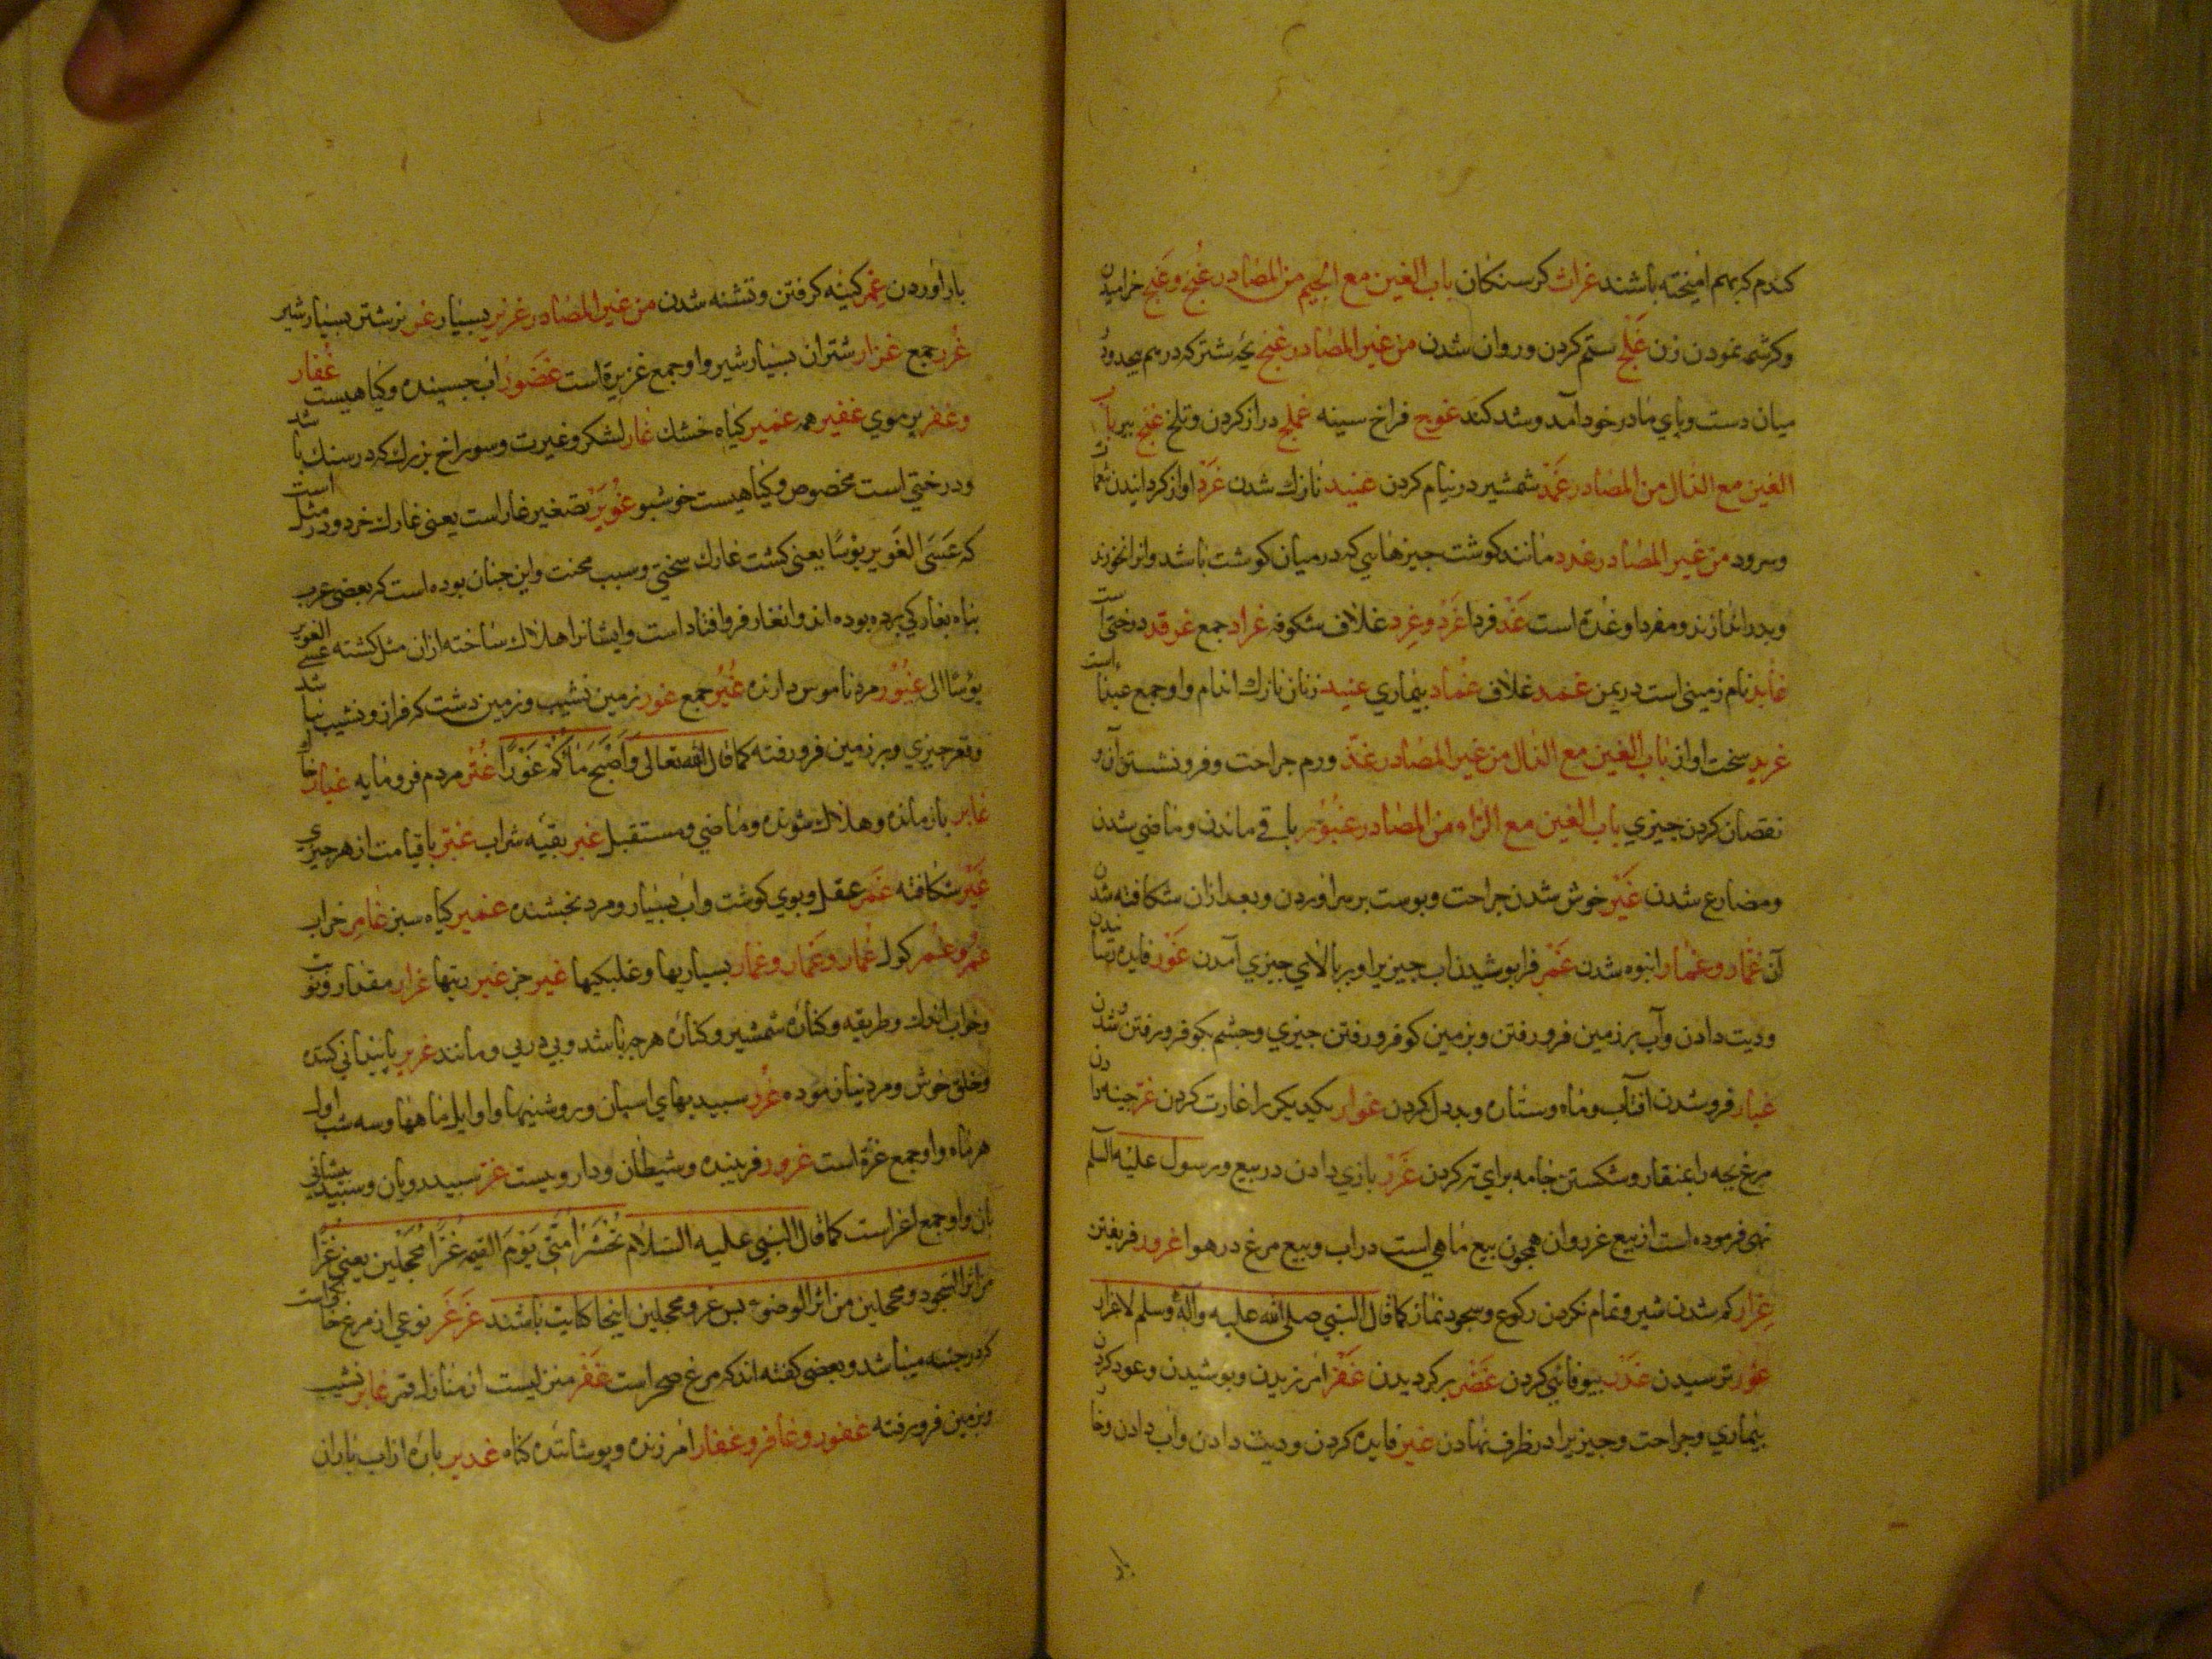 كندم كه بهم اميخته باشند غراث كرسنكان باب الغين مع الجيم من المصادر غُنج و غَنج خراميدن
وكرشمه نمودن زن غَلْج ستم كردن وروان شدن من غير المصادر غنج بچه شتر كه در هم
ميان دست وپاي مادر خود آمد وشد كند غوج فراخ سينه غملج دراز كردن وتلخ غنج پير باب
الغين مع الدال من المصادر غَمْد شمشير در نيام كردن غيد نازك شدن غَرَد اواز كردانيدن
وسرود من غير المصادر غدد مانند كوشت چيزهايي كه در ميان كوشت باشد وانرا نخورند
وبدر اندازند ومفرد او غدة است غَد فردا غَرَد و غِرَد غلاف شكوفه غراد جمع غرقد درختي است
غامد نام زميني است در يمن غمد غلاف غماد بيماري غيد زنان نازك اندام واو جمع است
غريد سخت اواز باب الغين مع الذال من غير المصادر غذ ورم جراحت وفرو نشستن آن و
نقصان كردن چيزي باب الغين مع الراء من المصادر غبور باقي ماندن وماضي شدن
ومضارع شدن غَبَر خوش شدن جراحت وپوست بر سر اوردن وبعد ازان شكافته شدن
آن غمار و غمار انبوه شدن غَمر فراپوشيدن اب چيزيرا وبر بالاي چيزي آمدن غَور فايده
وديت دادن وآب بر زمين فرو رفتن وبزمين كو فرو رفتن چيزي وچشم بكو فرو رفتن وشدن
غيار فرو شدن آفتاب وماه وستاره وبدل كردن غوار يكديكر را غارت كردن غر چينه دادن
مرغ بچه را بمنقار وشكستن جامه براي تر كردن غَرَر بازي دادن در بيع ورسول عليه السلم
نهي فرموده است از بيع غرر وان همچون بيع ماهي است در اب وبيع مرغ در هوا غرور فريفتن
غِرار كم شدن شير وتمام نكردن ركوع وسجود نماز كما قال النبي صلى الله عليه وآله وسلم لا غرار
ترسيدن غَدْر بيوفائي كردن غَضْر بر كرديدن غَفْر امرزيدن وپوشيدن وعود كردن
بيماري وجراحت وچيزيرا در ظرف نهادن غير فايده كردن وديت دادن واب دادن
بار اوردن غِمر كينه كرفتن وتشنه شدن من غير المصادر غزير بسيار غزر شتر بسيار شير
غُزر جمع غزار شتران بسيار شير واو جمع غزيرة است غَضْوَر اب چسپنده وكياهيست غُفار
وغفر پر موي غفير همه غمير كياه خشك غار لشكر وغيرت وسوراخ بزرك كه در سنك باشد
ودرختي است مخصوص وكياهيست خوشبو غُوَير تصغير غار است يعني غارك خرد ودر مثل است
كه عَسَى الغُوَير بؤسًا يعني كشت غارك سختي وسبب محنت واين چنان بوده است كه بعضي عرب
پناه بغاركي برده بوده اند وانغار فرو افتاد است وايشانرا هلاك ساخته ازان مثل كشته عسى الغوير
بؤسًا الى غيور مرد ناموس دارنده غُيُر جمع غور زمين نشيب وزمين دشت كه فراز ونشيب باشد
وقعر چيزي وبر زمين فرو رفته كما قال الله تعالى وَاَصْبَحَ مَاؤُكُمْ غَوْرًا غُثْر مردم فرومايه غبار خاك
غابر باز مانده وهلاك شونده وماضي ومستقبل غبر بقيه شراب غبر باقيامت از هر چيزي
غَبر شكافته غَمر عقل وبوي كوشت واب بسيار ومرد بخشنده غمير كياه سبز غامر خراب
غُمر و غُمر كول غُمار و غَمار و غمار بسياريها وغلبكيها غير جز غير ديتها غرار مقدار وفوت
وخواب اندك وطريقه وكناره شمشير وكناره هر چه باشد وپي در پي ومانند غرير پايندانى كننده
وخلق خوش ومرد نيازموده غُرر سپيديهاي اسپان وروشنيها واوايل ماهها وسه شب اول
هر ماه واو جمع غرة است غرور فريبنده وشيطان ودارويست غُر سپيد رويان وسپيد پيشاني
ان واو جمع اغر است كما قال النبي عليه السلام تُحْشَر اُمَّتي يَوْمَ القيمه غُرًّا مُحَجَّلين يعني غُرًّا
من اثر السجود ومحجلين من اثر الوضوء پس غر ومحجلين اينجا كنايت باشند غَرغَر نوعي از مرغ است
كه در حبشه ميباشد وبعضي كفته اند كه مرغ صحراست غَفْر منزليست از منازل قمر غاير نشيب
وبزمين فرو رفته غفور و غافر و غفار امرزنده وپوشاننده كناه غدير پاره از اب باران